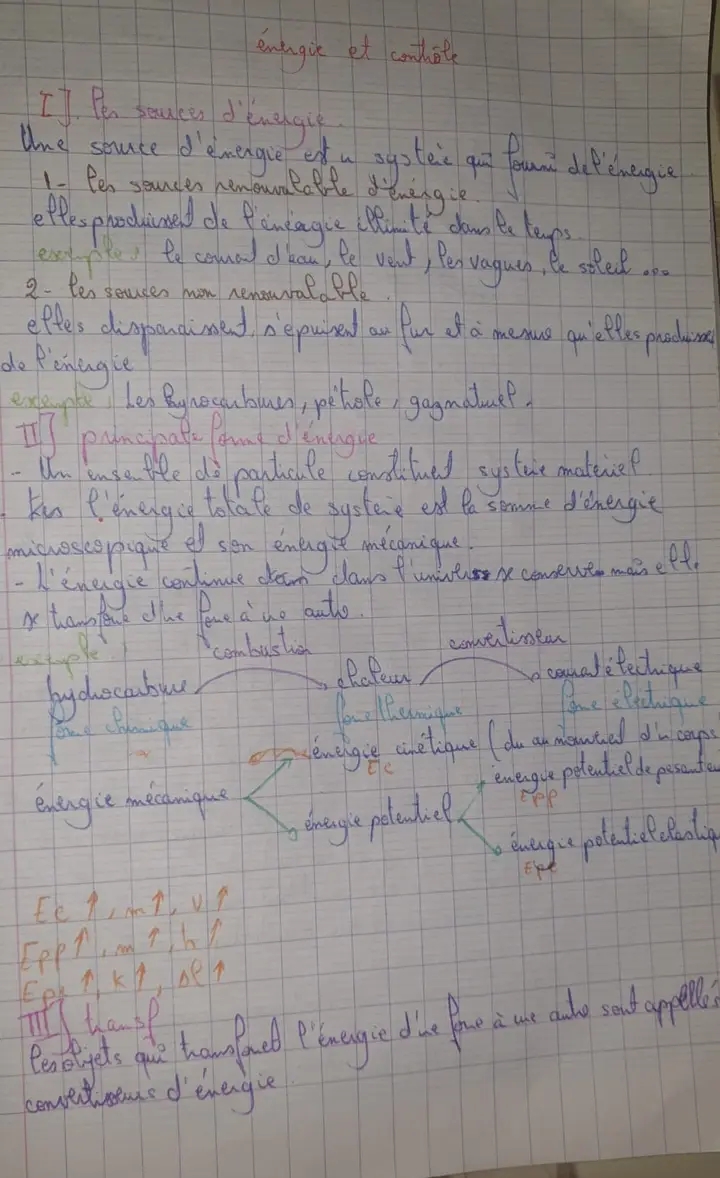 énergie et contrôle
I]. Les sources d'énergie
Une source d'énergie est u systeie qui fourni de l'énergie
1- les sources renouvalable d'énergie.
elles produisent de l'énergie illimité dans le temps.
exemple: le courat d'eau, le vent, les vagues, le soleil ...
2- les sources non renouvalable.
elles disparaissent, s'épuisent au fur et à mesure qu'elles produisent
de l'énergie
exemple: Les hyrocarbures, pétrole, gaz naturel.
II] principale forme d'énergie
- Un ensemble de particule constituent systeie materiel
- l'énergie totale de systeie est la somme d'énergie
microscopique et son énergie mécanique.
- L'énergie continue dans l'univers se conserve mais elle
se transforme d'une forme à une autre.
exemple:
combustion
convertisseur
hydrocarbure
chaleur
courat électrique
forme chimique
forme thermique
forme électrique
énergie cinétique (du au mouvement d'n corps
Ec
énergie mécanique
énergie potentiel
énergie potentiel de pesanteur
Epp
énergie potentiel elastique
Epe
Ec ↑, m ↑, v ↑
Epp ↑, m ↑, h ↑
Epe ↑, k ↑, Δl ↑
III] transf
Les objets qui transforment l'énergie d'une forme à une autre sont appellés
convertisseurs d'énergie.